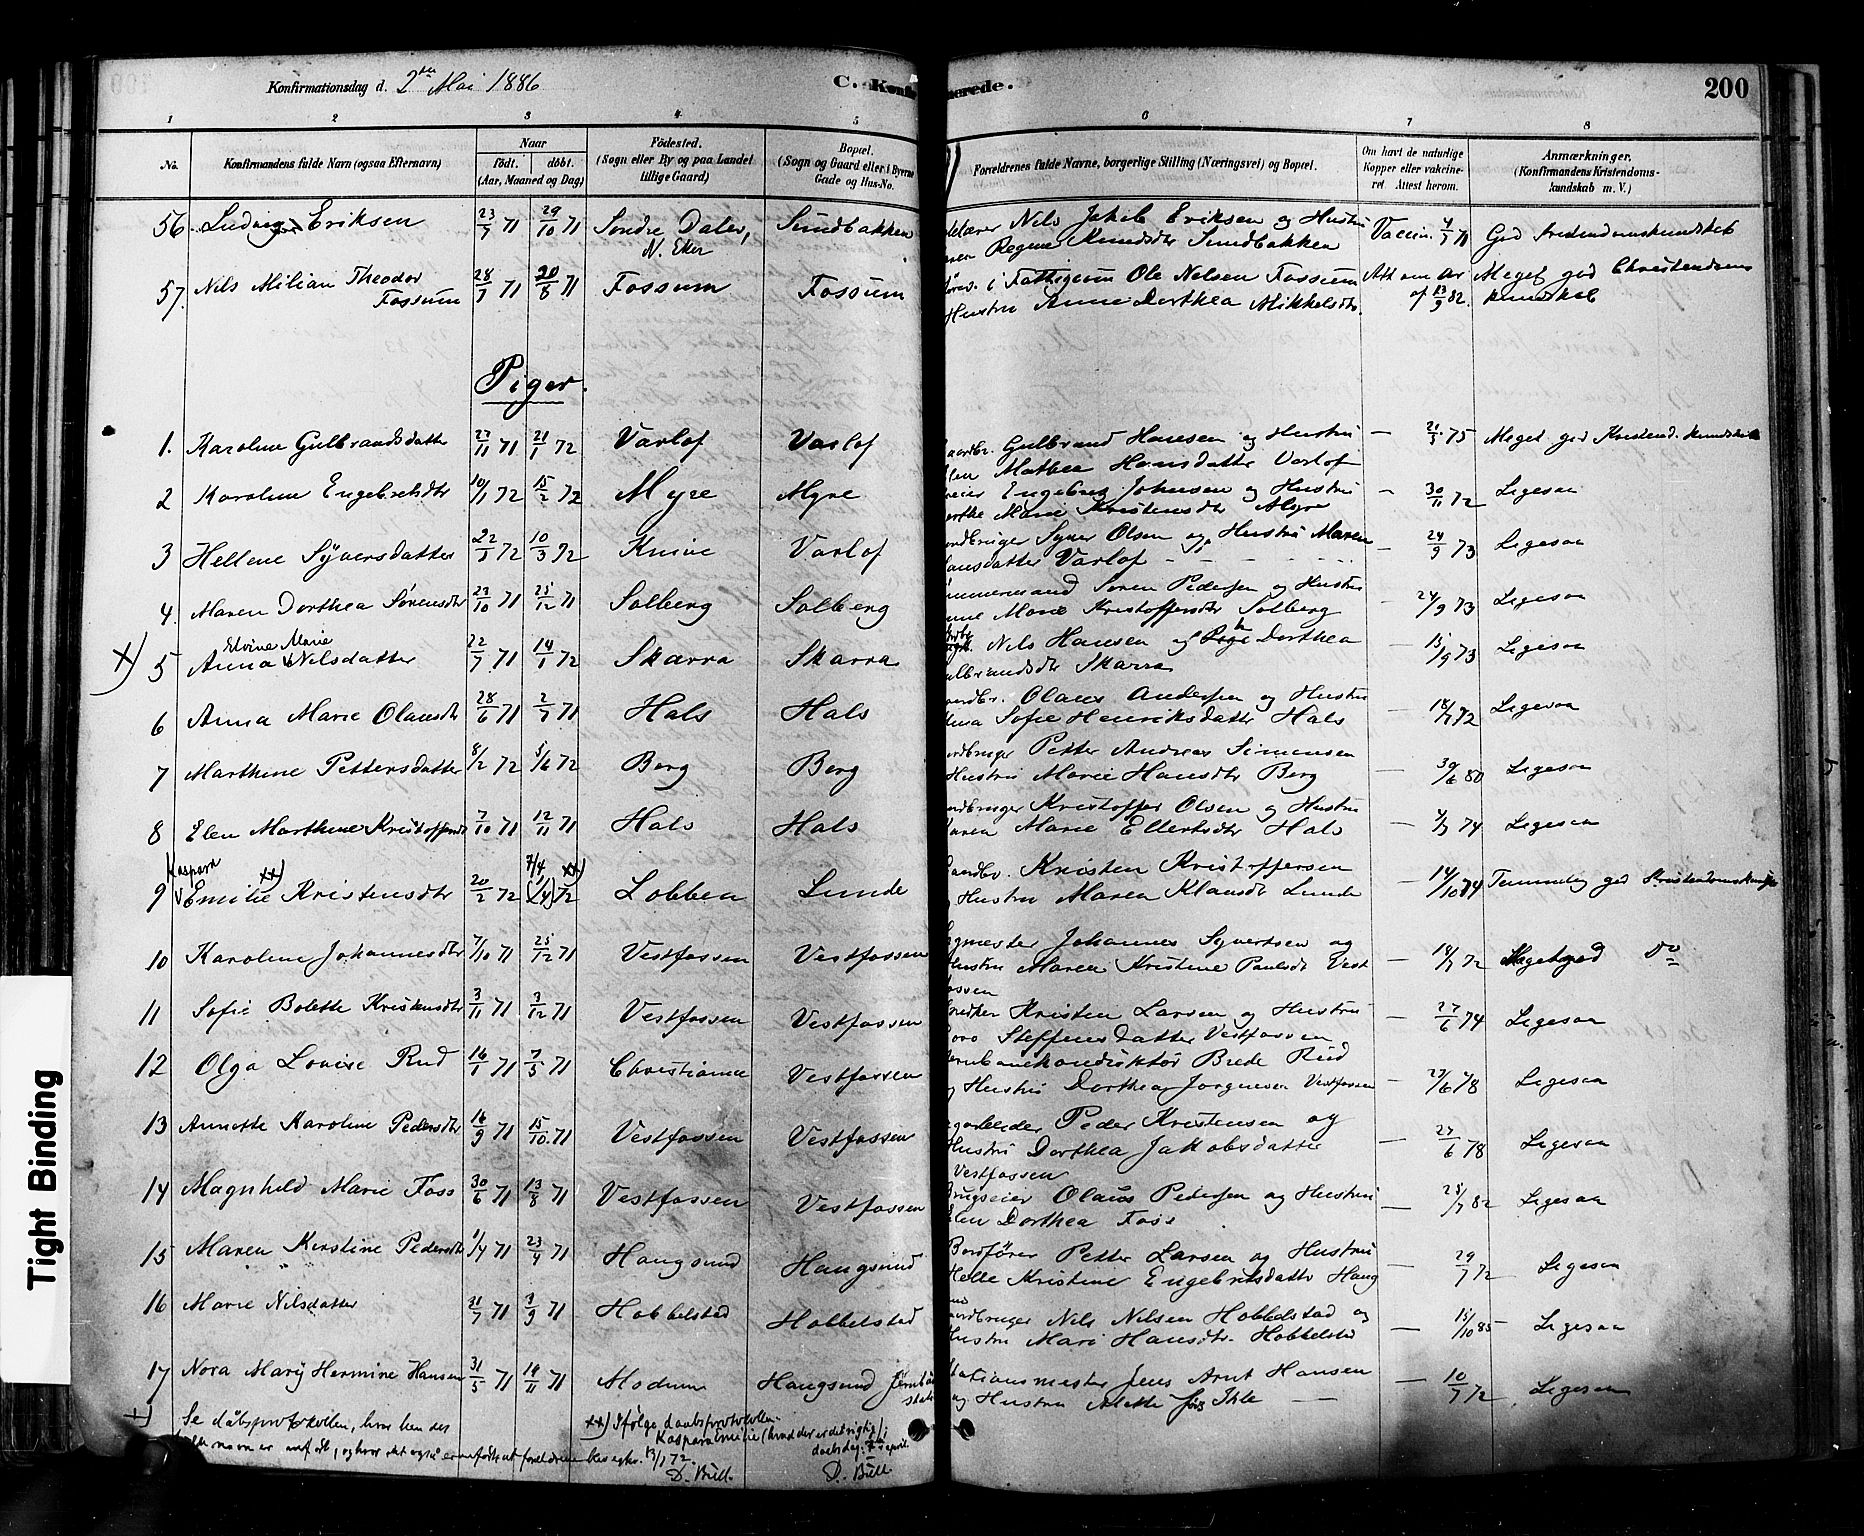 Konfirmationsdag d. 2den Mai 1886
C. Konfirmerede.
200
1 2 3 4 5 6 7 8
No.
Konfirmandens fulde Navn (ogsaa Efternavn)
Naar
født. døbt.
(Aar, Maaned og Dag)
Fødested.
(Sogn eller By og paa Landet
tillige Gaard)
Bopæl.
(Sogn og Gaard eller i Byerne
Gade og Hus-No.
Forældrenes fulde Navne, borgerlige Stilling (Næringsvei) og Bopæl.
Om havt de naturlige
Kopper eller vaccine-
ret. Attest herom.
Anmærkninger.
(Konfirmandens Kristendoms-
kundskab m. V.)
56. Ludvig Eriksen 23/7 71 29/10 71 Søndre Daler, N. Eker Sundbakken
Nils Jakob Eriksen og Hustru
Regine Knudsdtr Sundbakken
Vaccin. 4/7 71 God Kristendomskundskab
57. Nils Milian Theodor Fossum 28/7 71 20/8 71 Fossum Fossum
i Fattigcom Ole Nelsen Fossum
Hustru Anne Dorthea Mikkelsdtr.
Att om ar af 13/9 82. Meget god Christendoms kundskab
Piger.
1. Karoline Gulbrandsdatter 27/11 71 21/1 72 Varlof Varlof
Gulbrand Hansen og Hustru
Mathea Hansdatter Varlof
— 21/5 75 Meget god Kristend. kundskab
2 Karoline Engebretsdtr 10/1 72 15/2 72 Myre Myre
Engebret Johnsen og Hustru
Marie Kristensdtr Myre
— 30/11 72 Ligesaa
3 Hellene Syversdatter 22/1 72 10/3 72 Knive Varlof
Syver Olsen og Hustru Maren
Hansdatter Varlof
— 24/9 73 Ligesaa
4. Maren Dorthea Sørensdtr 23/10 71 25/12 71 Solberg Solberg
Søren Pedersen og Hustru
Marie Kristoffersdtr Solberg
— 24/9 73 Ligesaa
x) 5 Anna Elvine Marie Nilsdatter 22/7 71 14/1 72 Skarra Skarra
Nils Hansen og Dorthea
Gulbrandsdtr Skarra
— 15/9 73 Ligesaa
6 Anna Marie Olausdtr 28/6 71 2/7 71 Hals Hals
Olaus Andersen og Hustru
Sofie Henriksdatter Hals
— 18/7 72 Ligesaa
7 Marthine Pettersdatter 8/2 72 5/6 72 Berg Berg
Petter Andreas Simensen
Hustru Marie Hansdtr Berg
— 30/6 80 Ligesaa
8 Elen Marthine Kristoffersdtr 7/10 71 12/11 71 Hals Hals
Kristoffer Olsen og Hustru
Maren Marie Ellertsdtr Hals
— 4/7 74 Ligesaa
9 Kaspara Emilie xx) Kristensdtr 20/2 72 7/4 (1/4) 72 xx) Lobben Lunde
Kristen Kristoffersen
Hustru Maren Klausdt Lunde
— 14/10 74 Temmelig god Kristendomskundsk
10 Karoline Johannesdtr 7/10 71 25/12 71 Vestfossen Vestfossen
Johannes Syvertsen og
Hustru Maren Kristine Paulsdt Vest
fossen
— 18/7 72 Meget god Do
11 Sofie Bolette Kristensdtr 3/11 71 3/12 71 Vestfossen Vestfossen
Kristen Larsen og Hustru
Steffensdatter Vestfossen
— 27/6 74 Ligesaa
12 Olga Lovise Rud 16/1 71 7/5 71 Christiania Vestfossen
Jernbanekonduktør Brede Rud
og Hustru Dorthea Jørgensen Vestfossen
— 27/6 78 Ligesaa
13 Annette Karoline Pedersdtr 16/9 71 15/10 71 Vestfossen Vestfossen
Peder Kristensen og
Hustru Dorthea Jakobsdatter
Vestfossen
— 27/6 78 Ligesaa
14 Magnhild Marie Foss 30/6 71 13/8 71 Vestfossen Vestfossen
Brugseier Olaus Pedersen og Hustru
Elen Dorthea Foss
— 25/7 82 Ligesaa
15 Maren Kirstine Pedersdtr 1/4 71 23/4 71 Haugsund Haugsund
Petter Larsen og Hustru
Helle Kristine Engebretsdatter Haug
— 29/7 72 Ligesaa
16 Marie Nilsdatter 21/7 71 3/9 71 Hobbelstad Hobbelstad
Nils Nilsen Hobbelstad og
Hustru Mari Hansdtr. Hobbelstd
— 15/10 85 Ligesaa
17 Nora Mary Hermine Hansen 31/5 71 18/11 71 Modum Haugsund Jernban stati
Stationsmester Jens Arnt Hansen
og Hustru Mette Ihle
— 10/7 72 Ligesaa
x) Se dåbsprotokollen, hvor hendes
fulde navn er anført, og hvor det også er anført at forældrene blev egtv. 13/1 72. D. Bull.
xx) Ifølge daabsprotokollen
Kaspara Emilie (hvad der er det rigtige);
daabsdag: 7de april.
D. Bull
Tight Binding